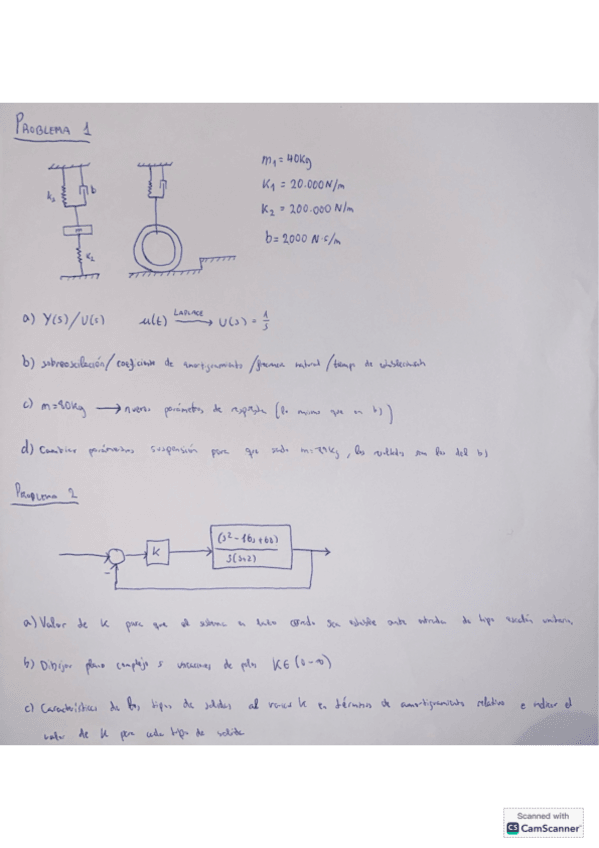 PROBLEMA 1
m1 = 40Kg
K1 = 20.000 N/m
K2 = 200.000 N/m
b = 2000 N·s/m
k1
b
m
k2
a) Y(s)/U(s) u(t) LAPLACE U(s) = 1/s
b) sobreoscilación/coeficiente de amortiguamiento/frecuencia natural/tiempo de establecimiento
c) m=80Kg nuevos parámetros de respuesta (lo mismo que en b)
d) Cambiar parámetros suspensión para que siendo los resultados sean los del b)
PROBLEMA 2
K
S(s+2)
-
a) Valor de K para que el sistema en lazo cerrado sea estable ante entrada de tipo escalón unitario
b) Dibujar plano complejo variaciones de polos K∈(0-∞)
c) Características de los tipos de salidas al variar K en términos de amortiguamiento relativo e indicar el
valor de K para cada tipo de salida
Scanned with
CS CamScanner